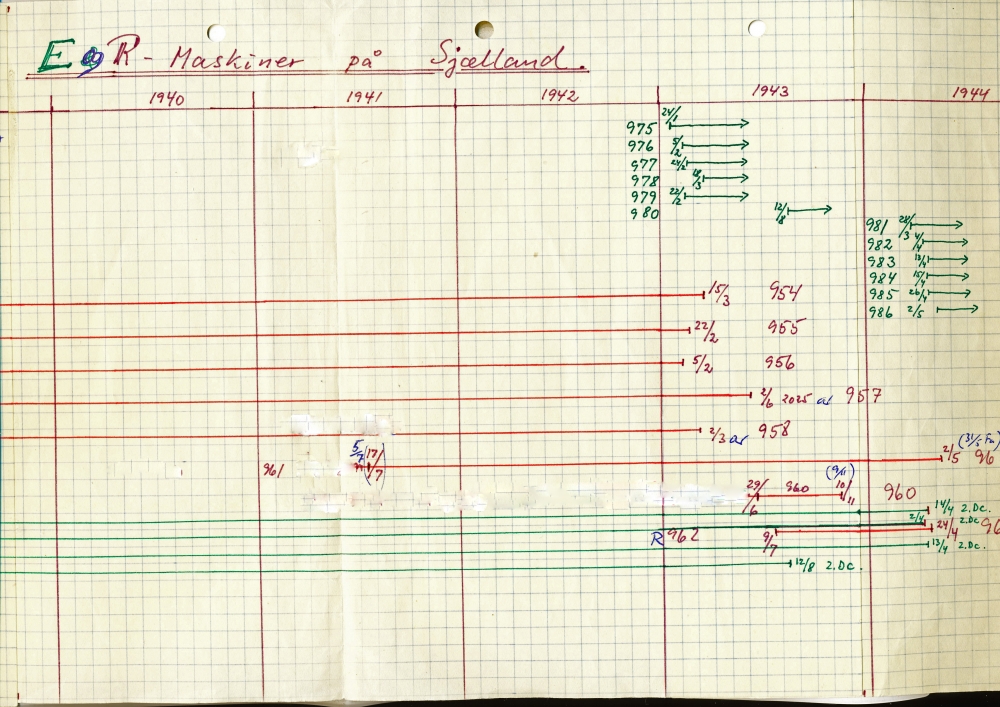 E og R - Maskiner på Sjælland.
1940 1941 1942 1943 1944
975 24/1
976 5/2
977 24/2
978 18/3
979 22/2
980 12/8
981 28/3
982 4/4
983 13/4
984 15/4
985 26/4
986 2/5
15/3 954
22/2 955
5/2 956
2/6 2025 ar 957
2/3 ar 958
961 5/7 (17/7) 2/5 (31/5 Fa) 96
29/6 960 (9/11) 10/11 960
14/4 2.Dc.
2/4 2.Dc
R 962 9/7 24/4 96
13/4 2.Dc.
12/8 2.Dc.